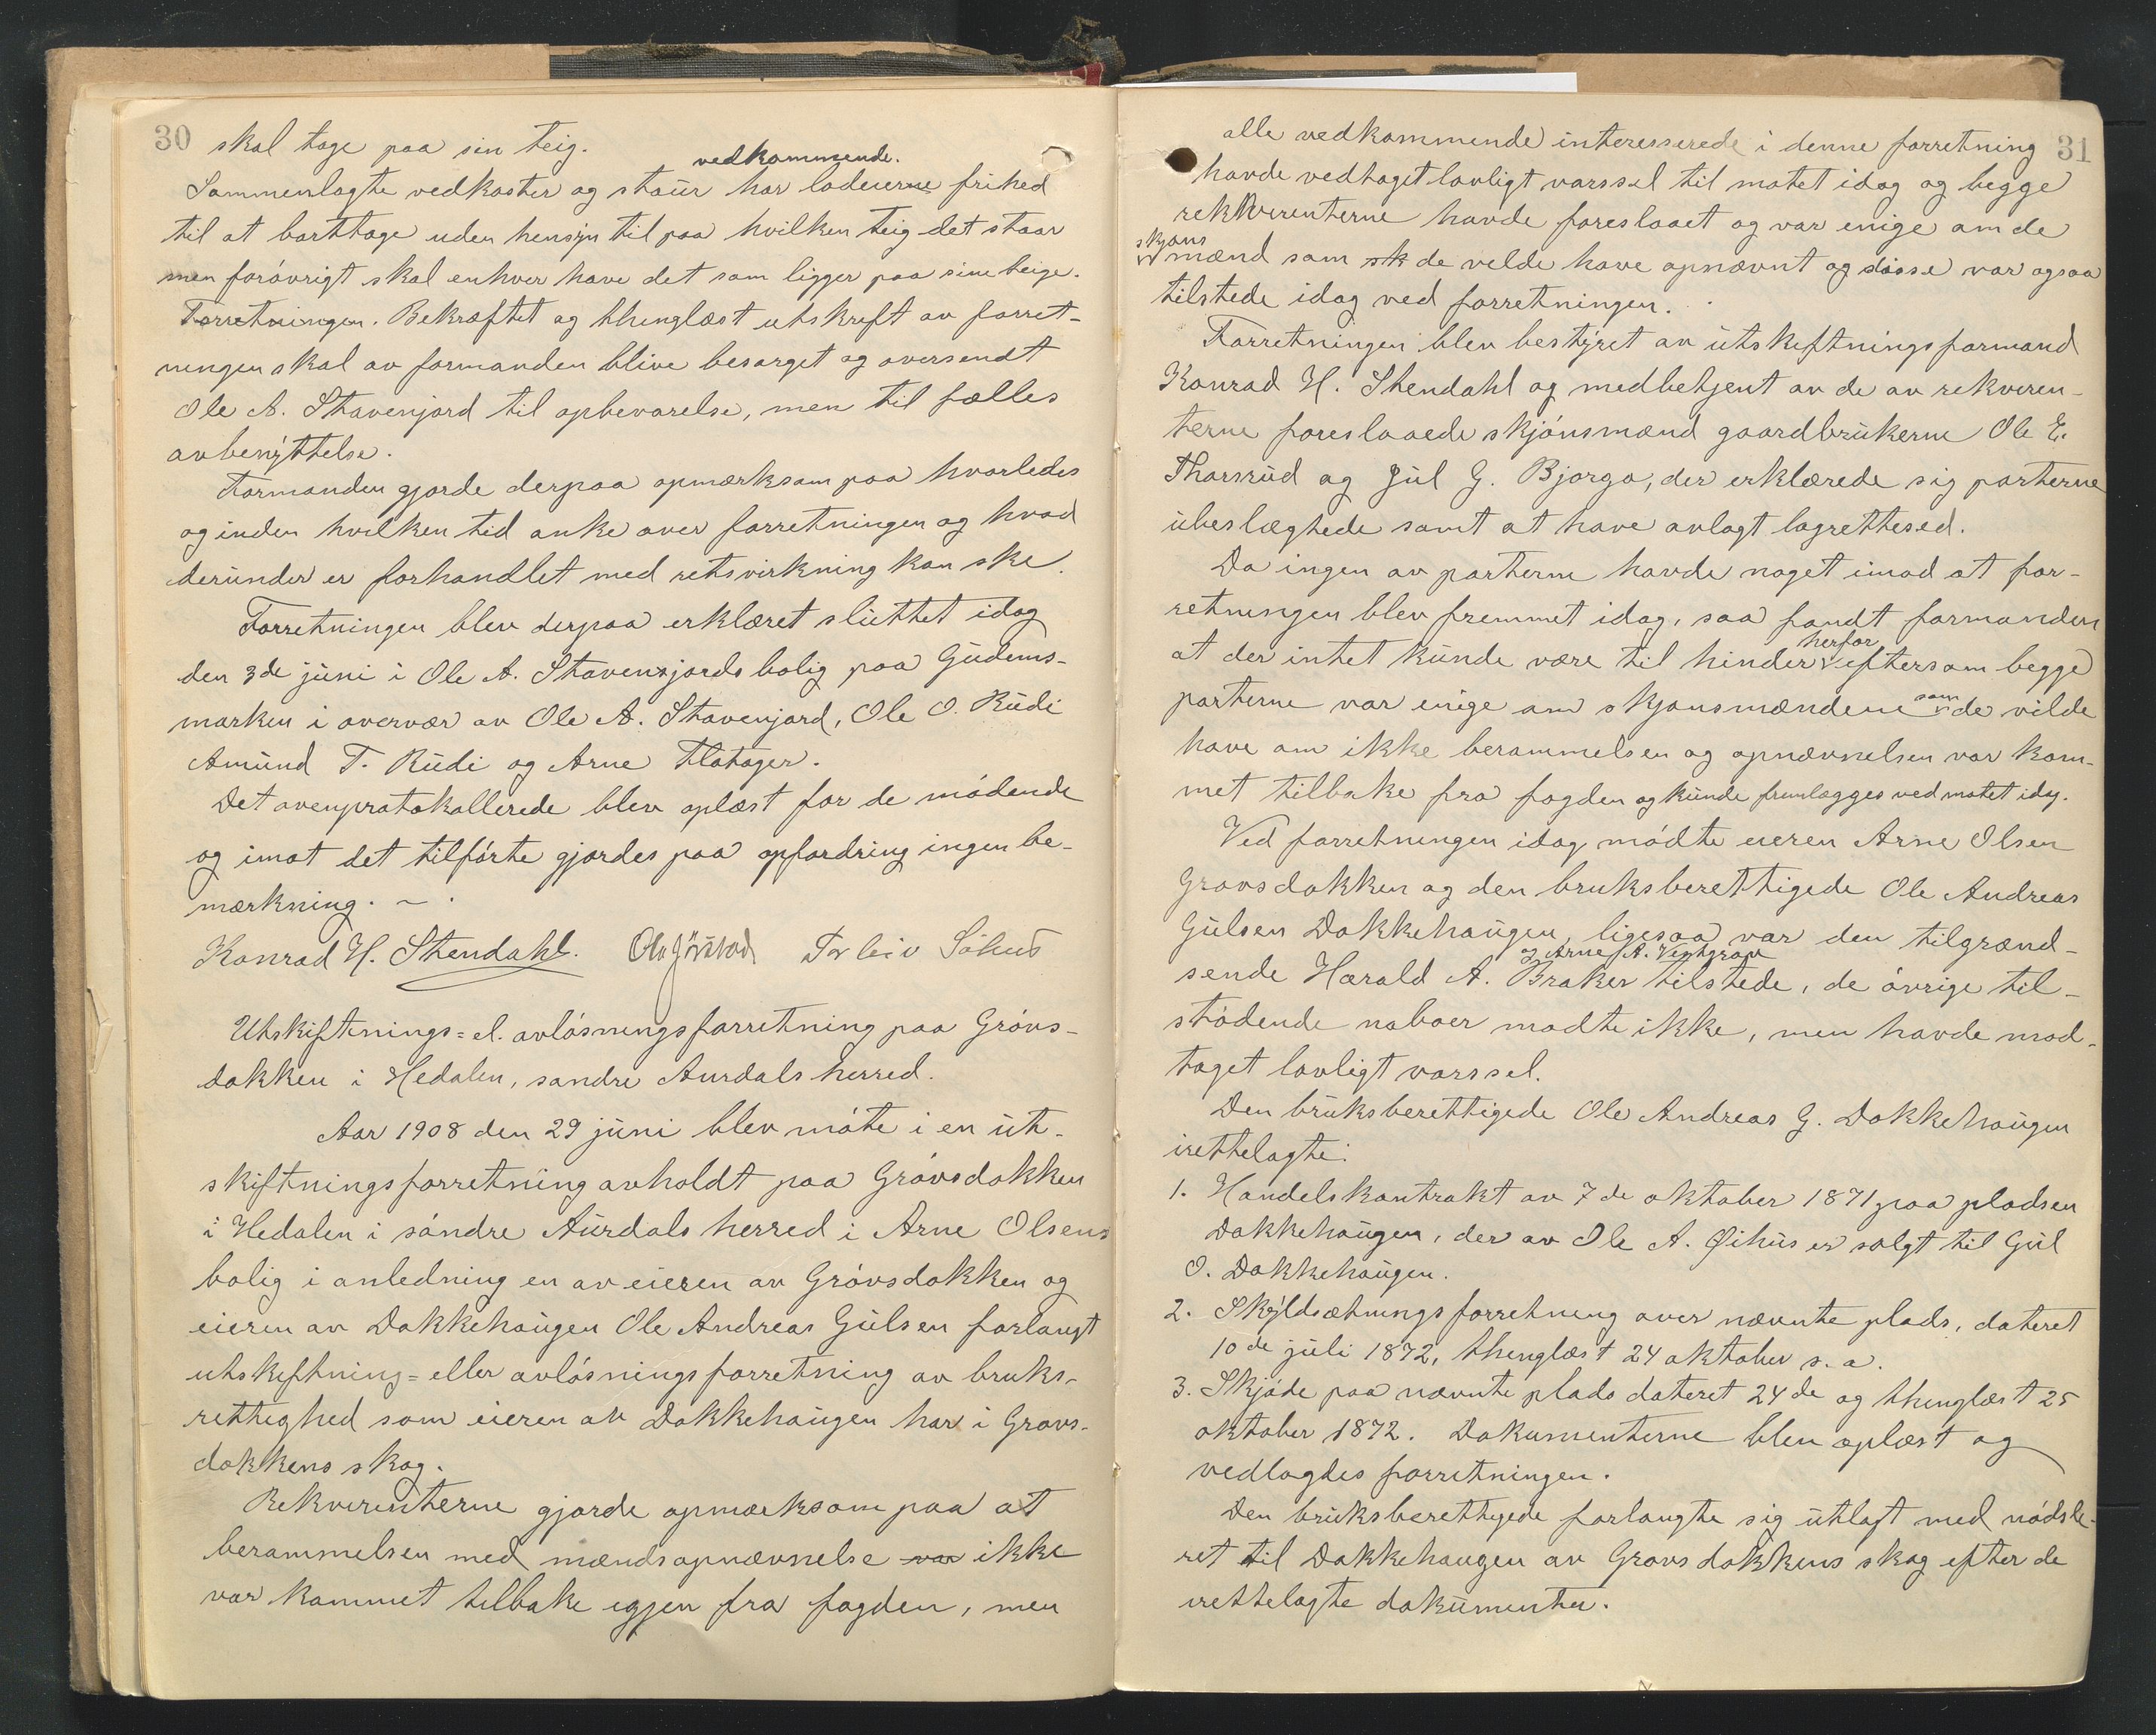 30
skal tage paa sin teig.
vedkommende.
Sammenlagte vedkaster og staur har lodeierne frihed
til at borttage uden hensyn til paa hvilken teig det staar
men forövrigt skal enhver have det som ligger paa sine teige.
Forretningen. Bekræftet og thinglæst utskrift av forret-
ningen skal av formanden blive besørget og oversendt
Ole A. Stavenjord til opbevarelse, men til fælles
avbenyttelse.
Formanden gjorde derpaa opmærksom paa hvorledes
og inden hvilken tid anke over forretningen og hvad
derunder er forhandlet med retsvirkning kan ske.
Forretningen blev derpaa erklæret sluttet idag
den 3de juni i Ole A. Stavenjords bolig paa Gudems-
marken i overvær av Ole A. Stavenjord, Ole O. Rudi
Amund T. Rudi og Arne Flatager.
Det ovenprotokollerede blev oplæst for de mödende
og imot det tilförte gjordes paa opfordring ingen be-
mærkning. ~ .
Konrad H. Stendahl. Ola Jörstad Torleiv Söhus
Utskiftnings= el. avlösningsforretning paa Grövs-
dokken i Hedalen, sondre Aurdals herred.
Aar 1908 den 29 juni blev möte i en ut-
skiftningsforretning avholdt paa Grövsdokken
i Hedalen i söndre Aurdals herred i Arne Olsens
bolig i anledning en av eieren av Grövsdokken og
eieren av Dokkehaugen Ole Andreas Gulsen forlangt
utskiftning= eller avlösningsforretning av bruks-
rettighed som eieren av Dokkehaugen har i Grovs-
dokkens skog.
Rekvirenterne gjorde opmærksom paa at
berammelsen med mændsopnævnelse var ikke
var kommet tilbake igjen fra fogden, men
31
alle vedkommende interesserede i denne forretning
havde vedtaget lovligt varssel til motet idag og begge
rekvirenterne havde foreslaaet og var enige om de
skjons
mænd som sk de velde have opnævnt og disse var ogsaa
tilstede idag ved forretningen.
Forretningen blev bestyret av utskiftningsformand
Konrad H. Stendahl og medbetjent av de av rekviren-
terne foreslaaede skjönsmænd gaardbrukerne Ole E.
Thorsrud og Jul G. Bjorgo, der erklærede sig parterne
ubeslægtede samt at have avlagt lagrettesed.
Da ingen av parterne havde noget imod at for-
retningen blev fremmet idag, saa fandt formanden
herfor
at der intet kunde være til hinder eftersom begge
som
parterne var enige om skjonsmændene de vilde
have om ikke berammelsen og opnævnelsen var kom-
met tilbake fra fogden og kunde fremlægges ved motet idag.
Ved forretningen idag mödte eieren Arne Olsen
Grovsdokken og den bruksberettigede Ole Andreas
Gulsen Dokkehaugen, ligesaa var den tilgrænd-
og Arne A.
sende Harald A. Braker tilstede, de övrige til-
stödende naboer modte ikke, men havde mod-
taget lovligt varssel.
Den bruksberettigede Ole Andreas G. Dokkehaugen
irettelagte:
1. Handelskontrakt av 7de oktober 1871 paa pladsen
Dokkehaugen, der av Ole A. Øihus er solgt til Gul
O. Dokkehaugen.
2. Skyldsætningsforretning over nævnte plads, dateret
10de juli 1872, thinglæst 24 oktober s. a.
3. Skjöde paa nævnte plads dateret 24de og thinglæst 25
oktober 1872. Dokumenterne blev oplæst og
vedlagdes forretningen.
Den bruksberettigede forlangte sig utlagt med nödsle-
ret til Dokkehaugen av Grovsdokkens skog efter de
irettelagte dokumenter.